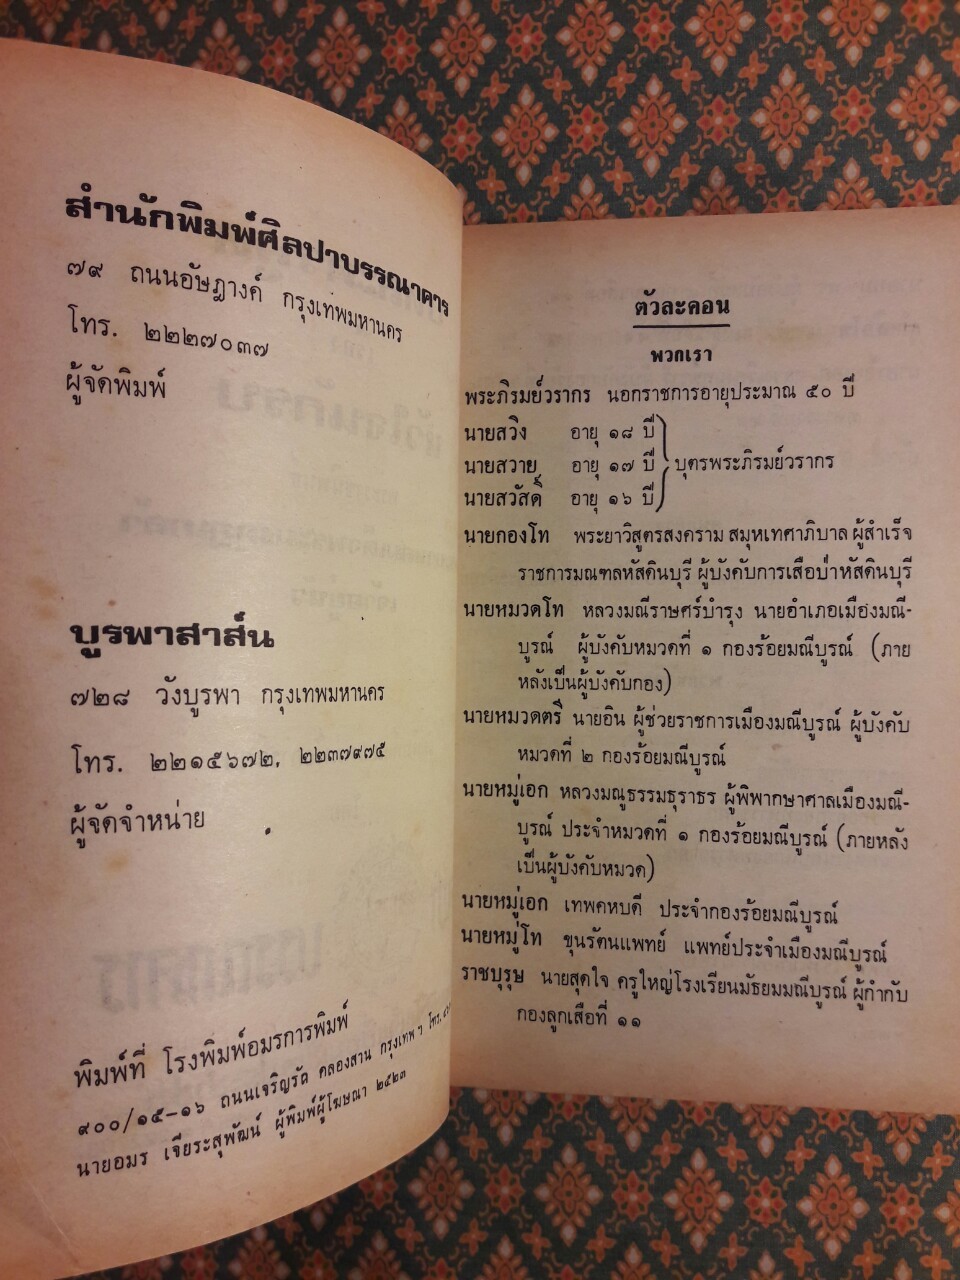 สำนักพิมพ์ศิลปาบรรณาคาร
๗๙ ถนนอัษฎางค์ กรุงเทพมหานคร
โทร. ๒๒๒๗๐๓๗
ผู้จัดพิมพ์
บูรพาสาส์น
๗๒๘ วังบูรพา กรุงเทพมหานคร
โทร. ๒๒๑๕๖๗๒, ๒๒๓๗๙๗๕
ผู้จัดจำหน่าย
พิมพ์ที่ โรงพิมพ์อมรการพิมพ์
๙๐๐/๑๕-๑๖ ถนนเจริญรัถ คลองสาน กรุงเทพ ฯ โทร.
นายอมร เจียระสุพัฒน์ ผู้พิมพ์ผู้โฆษณา ๒๕๒๓
ตัวละคอน
พวกเรา
พระภิรมย์วรากร นอกราชการอายุประมาณ ๕๐ ปี
นายสวิง อายุ ๑๘ ปี
นายสวาย อายุ ๑๗ ปี บุตรพระภิรมย์วรากร
นายสวัสดิ์ อายุ ๑๖ ปี
นายกองโท พระยาวิสูตรสงคราม สมุหเทศาภิบาล ผู้สำเร็จ
ราชการมณฑลหัสดินบุรี ผู้บังคับการเสือป่าหัสดินบุรี
นายหมวดโท หลวงมณีราษศร์บำรุง นายอำเภอเมืองมณี-
บูรณ์ ผู้บังคับหมวดที่ ๑ กองร้อยมณีบูรณ์ (ภาย
หลังเป็นผู้บังคับกอง)
นายหมวดตรี นายอิน ผู้ช่วยราชการเมืองมณีบูรณ์ ผู้บังคับ
หมวดที่ ๒ กองร้อยมณีบูรณ์
นายหมู่เอก หลวงมณูธรรมธุราธร ผู้พิพากษาศาลเมืองมณี-
บูรณ์ ประจำหมวดที่ ๑ กองร้อยมณีบูรณ์ (ภายหลัง
เป็นผู้บังคับหมวด)
นายหมู่เอก เทพคหบดี ประจำกองร้อยมณีบูรณ์
นายหมู่โท ขุนรัตนแพทย์ แพทย์ประจำเมืองมณีบูรณ์
ราชบุรุษ นายสุดใจ ครูใหญ่โรงเรียนมัธยมมณีบูรณ์ ผู้กำกับ
กองลูกเสือที่ ๑๑